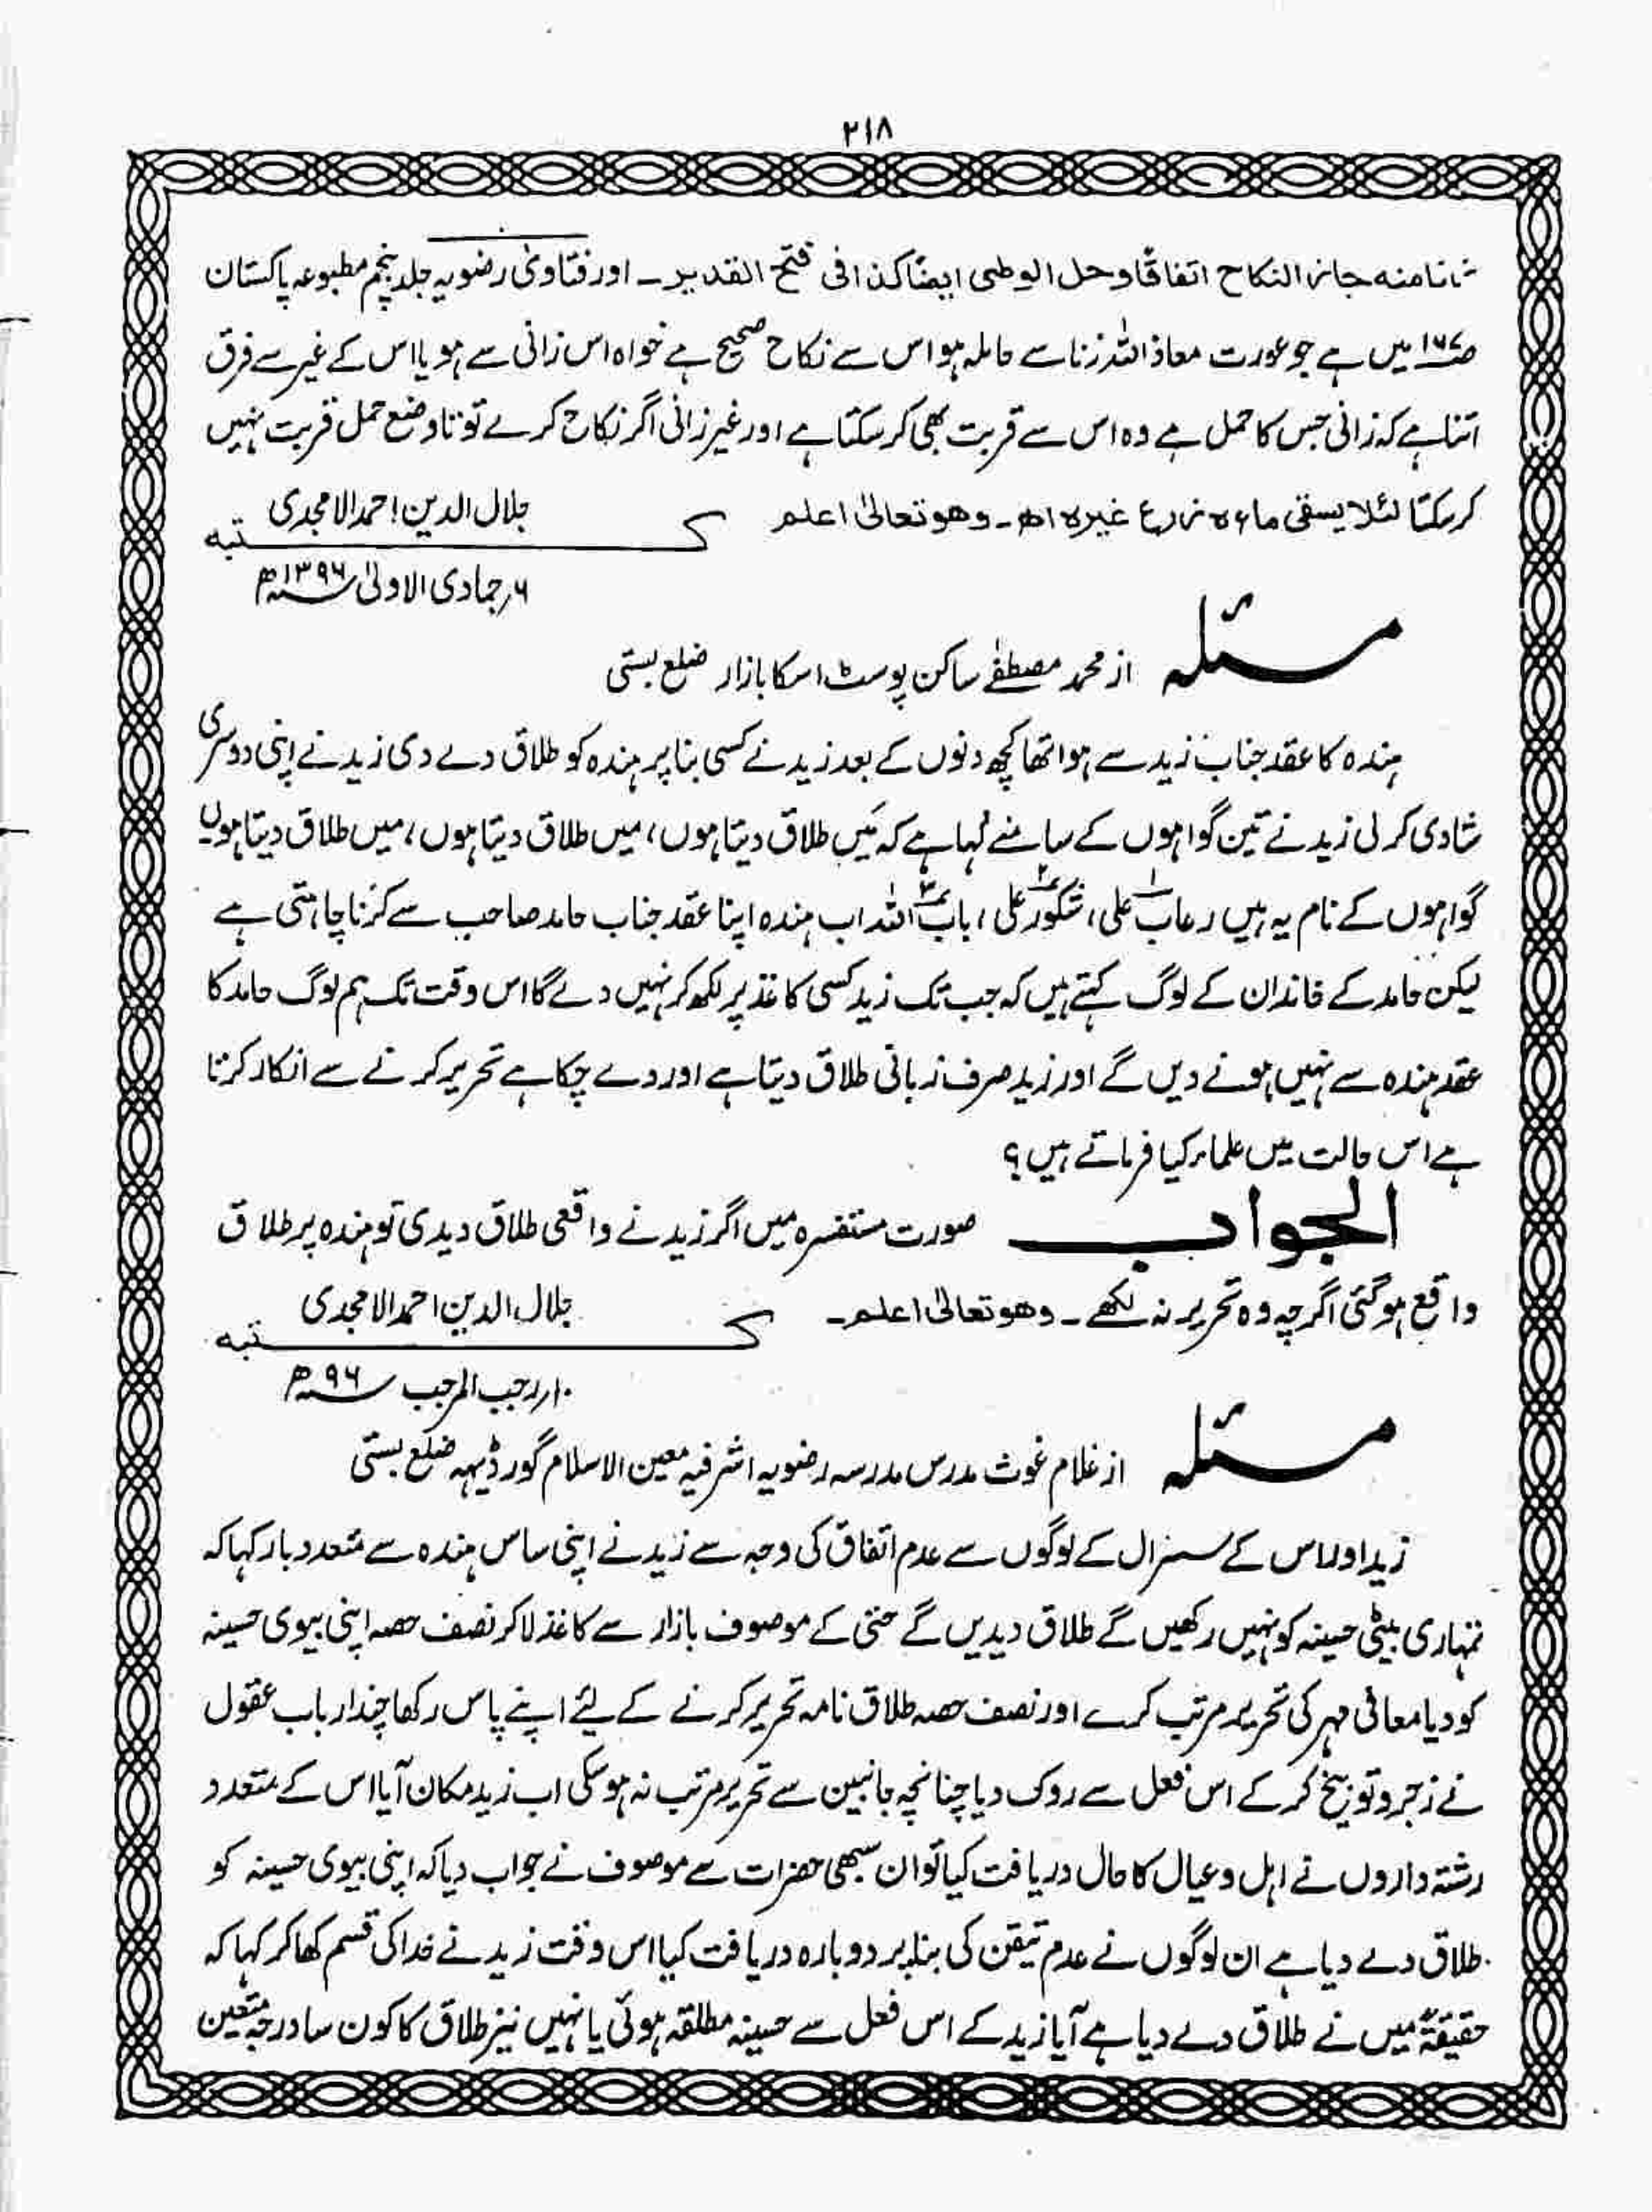 ۲۱۸
نانا منه جاز النکاح اتفاقًا وحل الوطی ایضًا کذا فی فتح القدیر ـ اور فتاویٰ رضویہ جلد پنجم مطبوعہ پاکستان
میں ہے جو عورت معاذ اللہ زنا سے حاملہ ہو اس سے نکاح صحیح ہے خواہ اس زانی سے ہو یا اس کے غیر سے فرق
اتنا ہے کہ زانی جس کا حمل ہے وہ اس سے قربت بھی کر سکتا ہے اور غیر زانی اگر نکاح کرے تو تا وضع حمل قربت نہیں
کر سکتا لئلا یسقی ماءہ زرع غیرہ اھ ـ وھو تعالیٰ اعلم
جلال الدین احمد الامجدی
کتبہ
۶؍ جمادی الاولیٰ ۱۳۹۶ھ
مسئلہ از محمد مصطفےٰ ساکن پوسٹ اسکا بازار ضلع بستی
ہندہ کا عقد جناب زید سے ہوا تھا کچھ دنوں کے بعد زید نے کسی بنا پر ہندہ کو طلاق دے دی زید نے اپنی دوسری
شادی کر لی زید نے تین گواہوں کے سامنے کہا ہے کہ میں طلاق دیتا ہوں، میں طلاق دیتا ہوں، میں طلاق دیتا ہوں
گواہوں کے نام یہ ہیں رعاب علی۱، شکور علی۲، باب اللہ۳ اب ہندہ اپنا عقد جناب حامد صاحب سے کرنا چاہتی ہے
لیکن حامد کے خاندان کے لوگ کہتے ہیں کہ جب تک زید کسی کاغذ پر لکھ کر نہیں دے گا اس وقت تک ہم لوگ حامد کا
عقد ہندہ سے نہیں ہونے دیں گے اور زید صرف زبانی طلاق دیتا ہے اور دے چکا ہے تحریر کرنے سے انکار کرتا
ہے اس حالت میں علماء کیا فرماتے ہیں؟
الجواب صورت مستفسرہ میں اگر زید نے واقعی طلاق دیدی تو ہندہ پر طلاق
واقع ہو گئی اگرچہ وہ تحریر نہ لکھے ـ وھو تعالیٰ اعلم ـ
جلال الدین احمد الامجدی
کتبہ
۱۰؍ رجب المرجب ۹۶ھ
مسئلہ از غلام غوث مدرس مدرسہ رضویہ اشرفیہ معین الاسلام گورڈیہہ ضلع بستی
زید اور اس کے سسرال کے لوگوں سے عدم اتفاق کی وجہ سے زید نے اپنی ساس ہندہ سے متعدد بار کہا کہ
تمہاری بیٹی حسینہ کو نہیں رکھیں گے طلاق دیدیں گے حتیٰ کے موصوف بازار سے کاغذ لا کر نصف حصہ اپنی بیوی حسینہ
کو دیا معافی مہر کی تحریر مرتب کرے اور نصف حصہ طلاق نامہ تحریر کرنے کے لیئے اپنے پاس رکھا چند ارباب عقول
نے زجر و توبیخ کر کے اس فعل سے روک دیا چنانچہ جانبین سے تحریر مرتب نہ ہو سکی اب زید مکان آیا اس کے متعدد
رشتہ داروں نے اہل و عیال کا حال دریافت کیا تو ان سبھی حضرات سے موصوف نے جواب دیا کہ اپنی بیوی حسینہ کو
طلاق دے دیا ہے ان لوگوں نے عدم تیقن کی بنا پر دوبارہ دریافت کیا اس وقت زید نے خدا کی قسم کھا کر کہا کہ
حقیقۃً میں نے طلاق دے دیا ہے آیا زید کے اس فعل سے حسینہ مطلقہ ہوئی یا نہیں نیز طلاق کا کون سا درجہ متعین